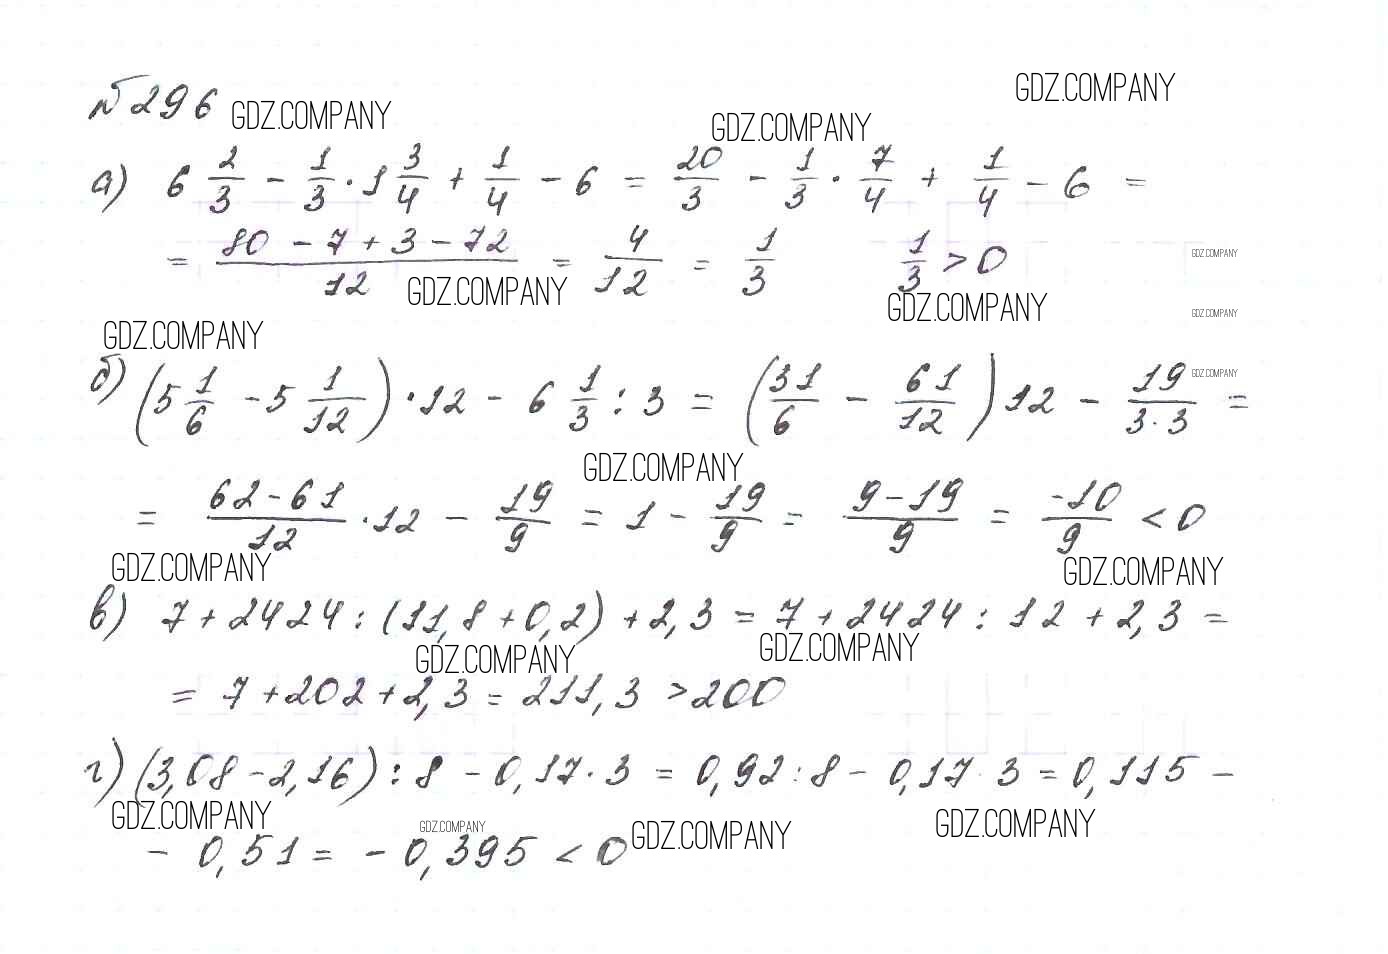 № 296 GDZ.COMPANY GDZ.COMPANY GDZ.COMPANY
а) 6 2/3 - 1/3 · 1 3/4 + 1/4 - 6 = 20/3 - 1/3 · 7/4 + 1/4 - 6 =
= (80 - 7 + 3 - 72)/12 = 4/12 = 1/3 1/3 > 0 GDZ.COMPANY
GDZ.COMPANY GDZ.COMPANY GDZ.COMPANY
GDZ.COMPANY
б) (5 1/6 - 5 1/12) · 12 - 6 1/3 : 3 = (31/6 - 61/12) 12 - 19/(3·3) = GDZ.COMPANY
GDZ.COMPANY
= (62 - 61)/12 · 12 - 19/9 = 1 - 19/9 = (9 - 19)/9 = -10/9 < 0
GDZ.COMPANY GDZ.COMPANY
в) 7 + 2424 : (11,8 + 0,2) + 2,3 = 7 + 2424 : 12 + 2,3 =
GDZ.COMPANY GDZ.COMPANY
= 7 + 202 + 2,3 = 211,3 > 200
г) (3,08 - 2,16) : 8 - 0,17 · 3 = 0,92 : 8 - 0,17 3 = 0,115 -
GDZ.COMPANY GDZ.COMPANY GDZ.COMPANY GDZ.COMPANY
- 0,51 = - 0,395 < 0